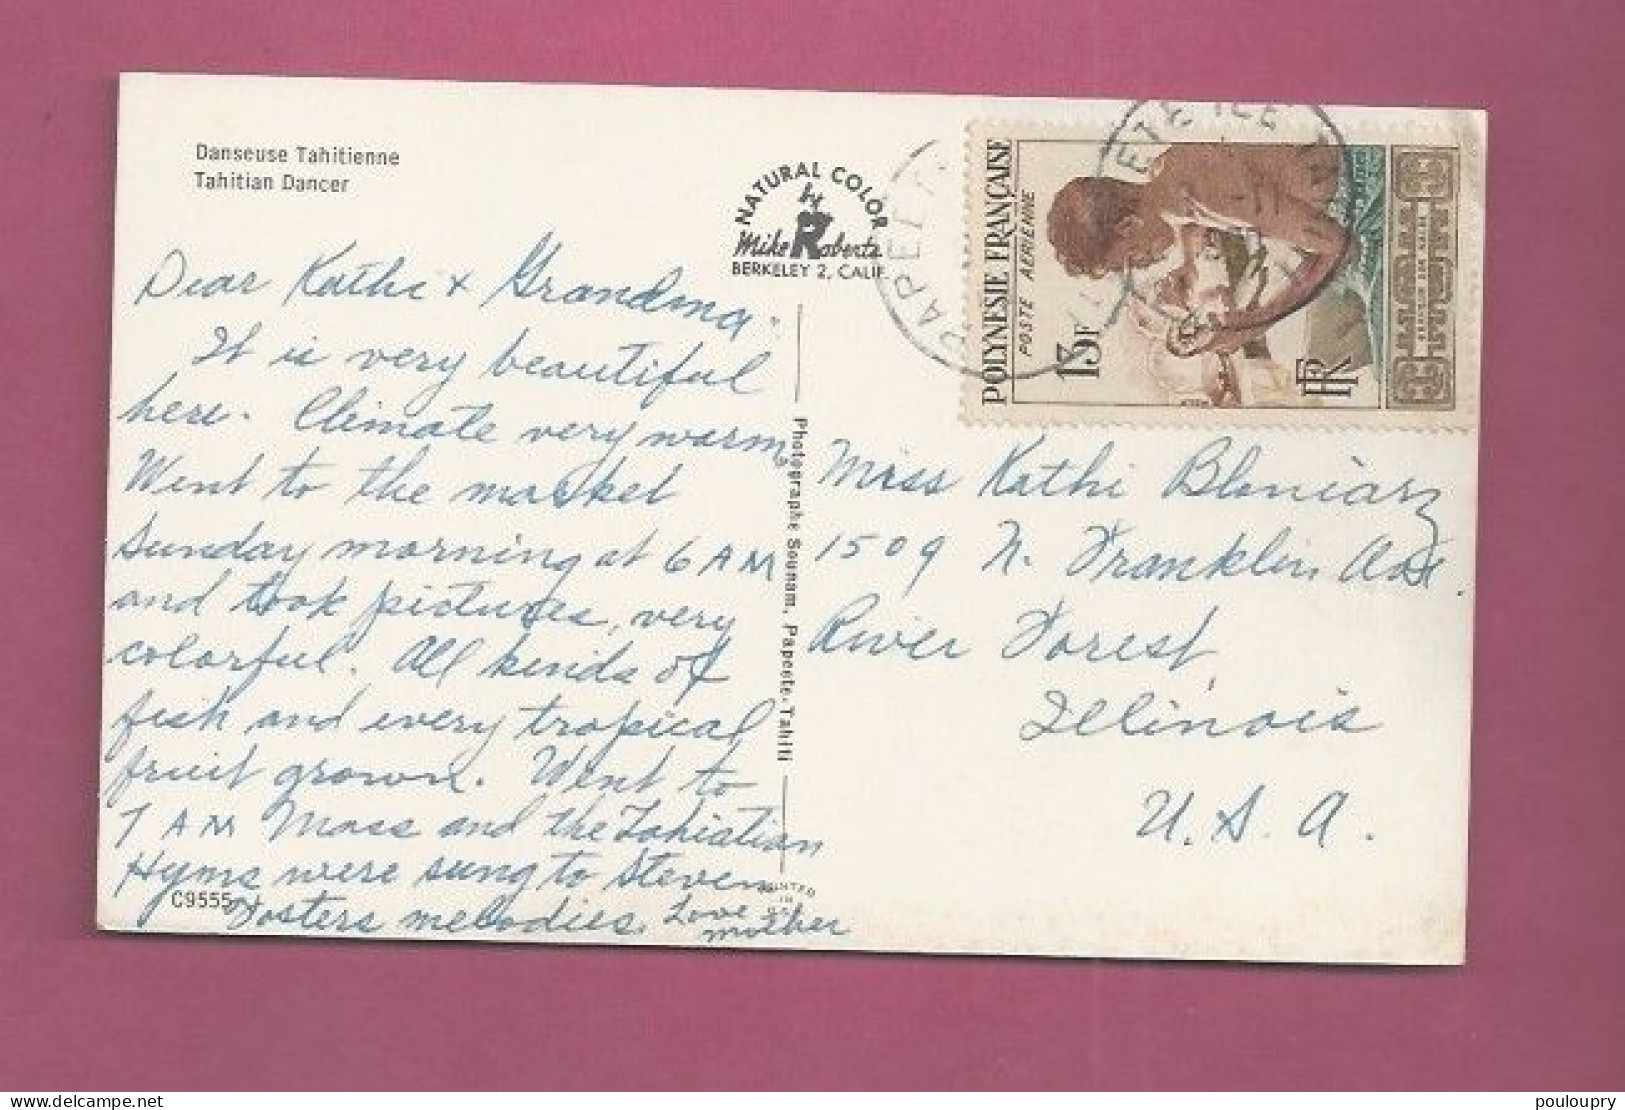 Danseuse Tahitienne
Tahitian Dancer
NATURAL COLOR
by
Mike Roberts
BERKELEY 2, CALIF.
POLYNESIE FRANÇAISE
POSTE AERIENNE
13F
RF
PAPEETE
Dear Kathi & Grandma:
It is very beautiful
here. Climate very warm,
Went to the market
Sunday morning at 6 AM
and took pictures, very
colorful. All kinds of
fish and every tropical
fruit grown. Went to
7 AM Mass and the Tahiatian
Hyms were sung to Steven
Fosters melodies. Love
mother
C9555
PRINTED
IN
Photographe Sounam, Papeete-Tahiti
Miss Kathi Bloniarz
1509 N. Franklin Ave.
River Forest,
Illinois
U.S.A.
pouloupry